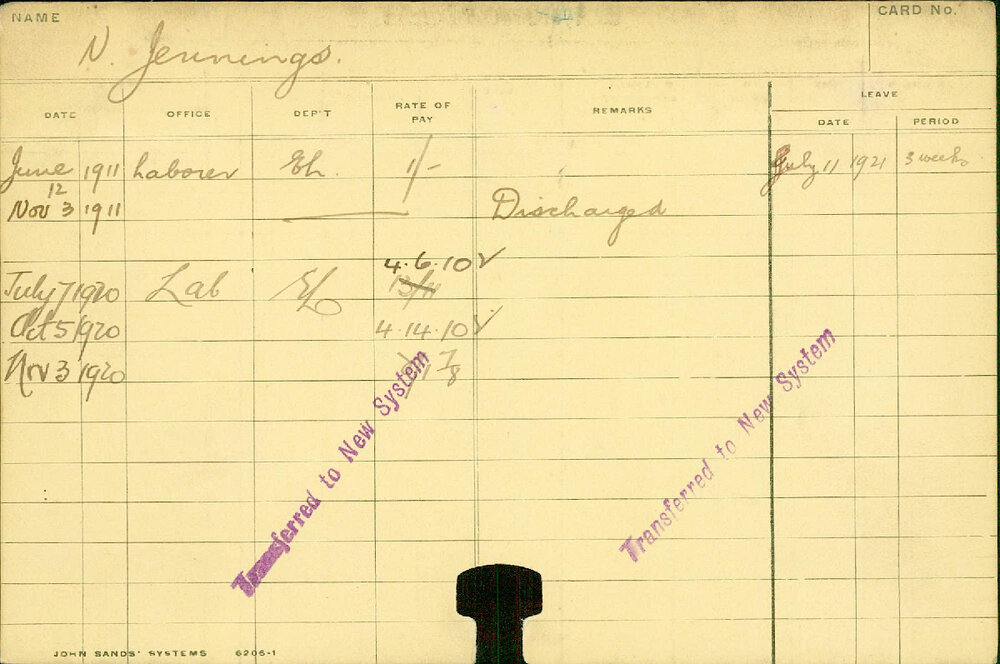 NAME
CARD No.
N. Jennings.
DATE OFFICE DEP'T RATE OF PAY REMARKS LEAVE
DATE PERIOD
June 12 1911 Laborer 1/- July 11 1921 3 weeks
Nov 3 1911 Discharged
4.6.10
July 7 1920 Lab
Oct 5 1920 4.14.10
Nov 3 1920
Transferred to New System
Transferred to New System
JOHN SANDS' SYSTEMS 6206-1